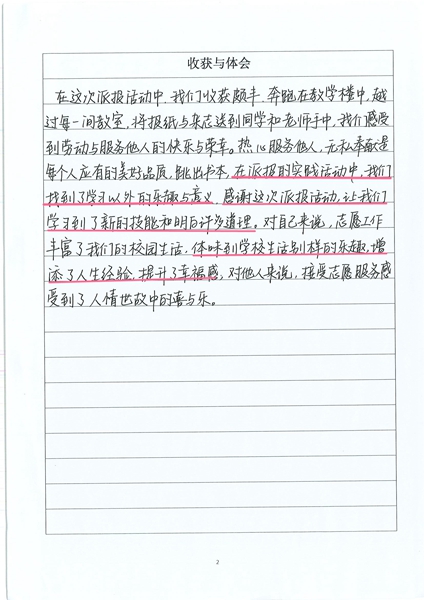 收获与体会
在这次派报活动中,我们收获颇丰.奔跑在教学楼中,越
过每一间教室,将报纸与杂志送到同学和老师手中,我们感受
到劳动与服务他人的快乐与荣幸。热心服务他人,无私奉献是
每个人应有的美好品质,跳出书本,在派报的实践活动中,我们
找到了学习以外的乐趣与意义.感谢这次派报活动,让我们
学习到了新的技能和明白许多道理。对自己来说,志愿工作
丰富了我们的校园生活.体味到学校生活别样的乐趣,增
添了人生经验.提升了幸福感,对他人来说,接受志愿服务感
受到了人情世故中的喜与乐。
2